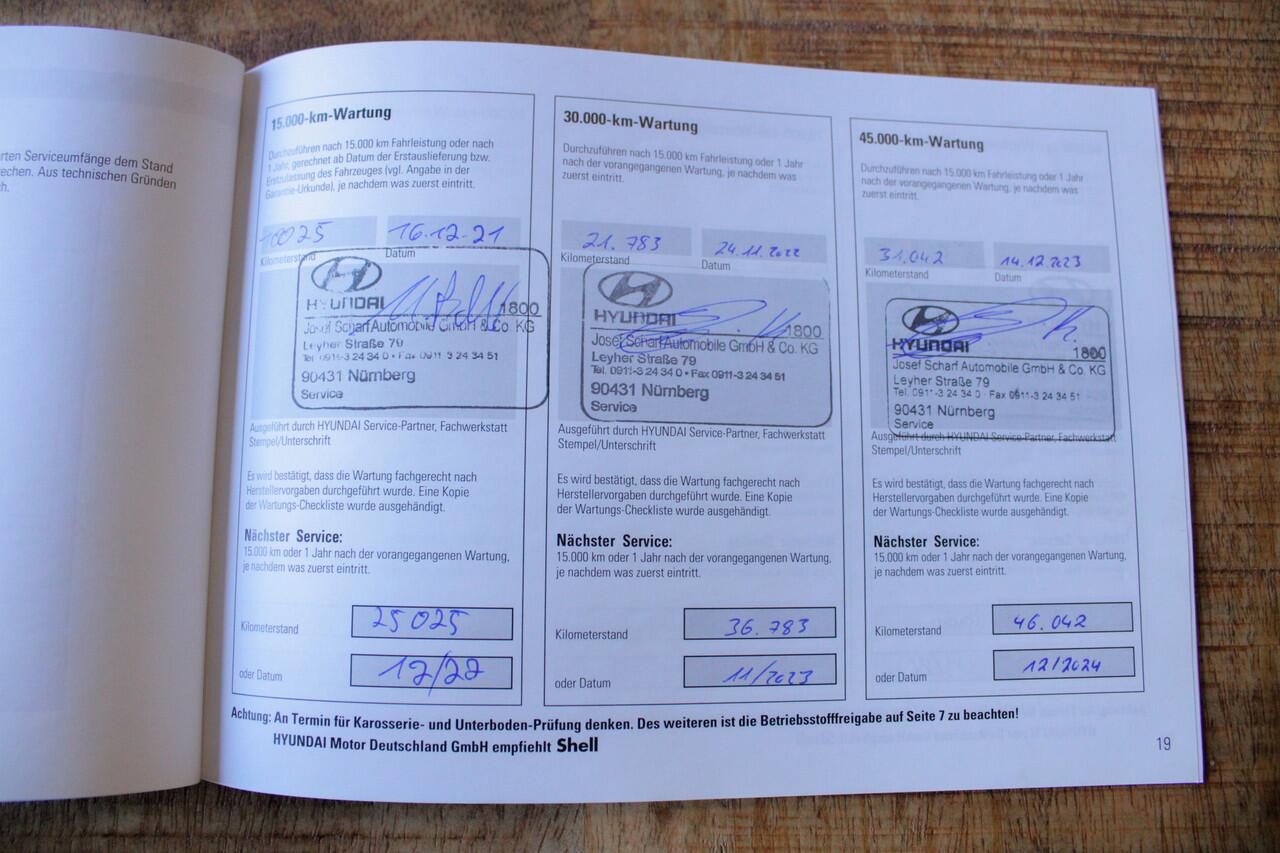 rten Serviceumfänge dem Stand
echen. Aus technischen Gründen
h.
15.000-km-Wartung
Durchzuführen nach 15.000 km Fahrleistung oder nach
1 Jahr, gerechnet ab Datum der Erstauslieferung bzw.
Erstzulassung des Fahrzeuges (vgl. Angabe in der
Garantie-Urkunde), je nachdem was zuerst eintritt.
10025 16.12.21
Kilometerstand Datum
HYUNDAI 1800
Josef Scharf Automobile GmbH & Co. KG
Leyher Straße 79
Tel. 0911-3 24 34 0 • Fax 0911-3 24 34 51
90431 Nürnberg
Service
Ausgeführt durch HYUNDAI Service-Partner, Fachwerkstatt
Stempel/Unterschrift
Es wird bestätigt, dass die Wartung fachgerecht nach
Herstellervorgaben durchgeführt wurde. Eine Kopie
der Wartungs-Checkliste wurde ausgehändigt.
Nächster Service:
15.000 km oder 1 Jahr nach der vorangegangenen Wartung,
je nachdem was zuerst eintritt.
Kilometerstand 25025
oder Datum 12/22
30.000-km-Wartung
Durchzuführen nach 15.000 km Fahrleistung oder 1 Jahr
nach der vorangegangenen Wartung, je nachdem was
zuerst eintritt.
21.783 24.11.2022
Kilometerstand Datum
HYUNDAI 1800
Josef Scharf Automobile GmbH & Co. KG
Leyher Straße 79
Tel. 0911-3 24 34 0 • Fax 0911-3 24 34 51
90431 Nürnberg
Service
Ausgeführt durch HYUNDAI Service-Partner, Fachwerkstatt
Stempel/Unterschrift
Es wird bestätigt, dass die Wartung fachgerecht nach
Herstellervorgaben durchgeführt wurde. Eine Kopie
der Wartungs-Checkliste wurde ausgehändigt.
Nächster Service:
15.000 km oder 1 Jahr nach der vorangegangenen Wartung,
je nachdem was zuerst eintritt.
Kilometerstand 36.783
oder Datum 11/2023
45.000-km-Wartung
Durchzuführen nach 15.000 km Fahrleistung oder 1 Jahr
nach der vorangegangenen Wartung, je nachdem was
zuerst eintritt.
31.042 14.12.2023
Kilometerstand Datum
HYUNDAI 1800
Josef Scharf Automobile GmbH & Co. KG
Leyher Straße 79
Tel. 0911-3 24 34 0 · Fax 0911-3 24 34 51
90431 Nürnberg
Service
Ausgeführt durch HYUNDAI Service-Partner, Fachwerkstatt
Stempel/Unterschrift
Es wird bestätigt, dass die Wartung fachgerecht nach
Herstellervorgaben durchgeführt wurde. Eine Kopie
der Wartungs-Checkliste wurde ausgehändigt.
Nächster Service:
15.000 km oder 1 Jahr nach der vorangegangenen Wartung,
je nachdem was zuerst eintritt.
Kilometerstand 46.042
oder Datum 12/2024
Achtung: An Termin für Karosserie- und Unterboden-Prüfung denken. Des weiteren ist die Betriebsstofffreigabe auf Seite 7 zu beachten!
HYUNDAI Motor Deutschland GmbH empfiehlt Shell
19